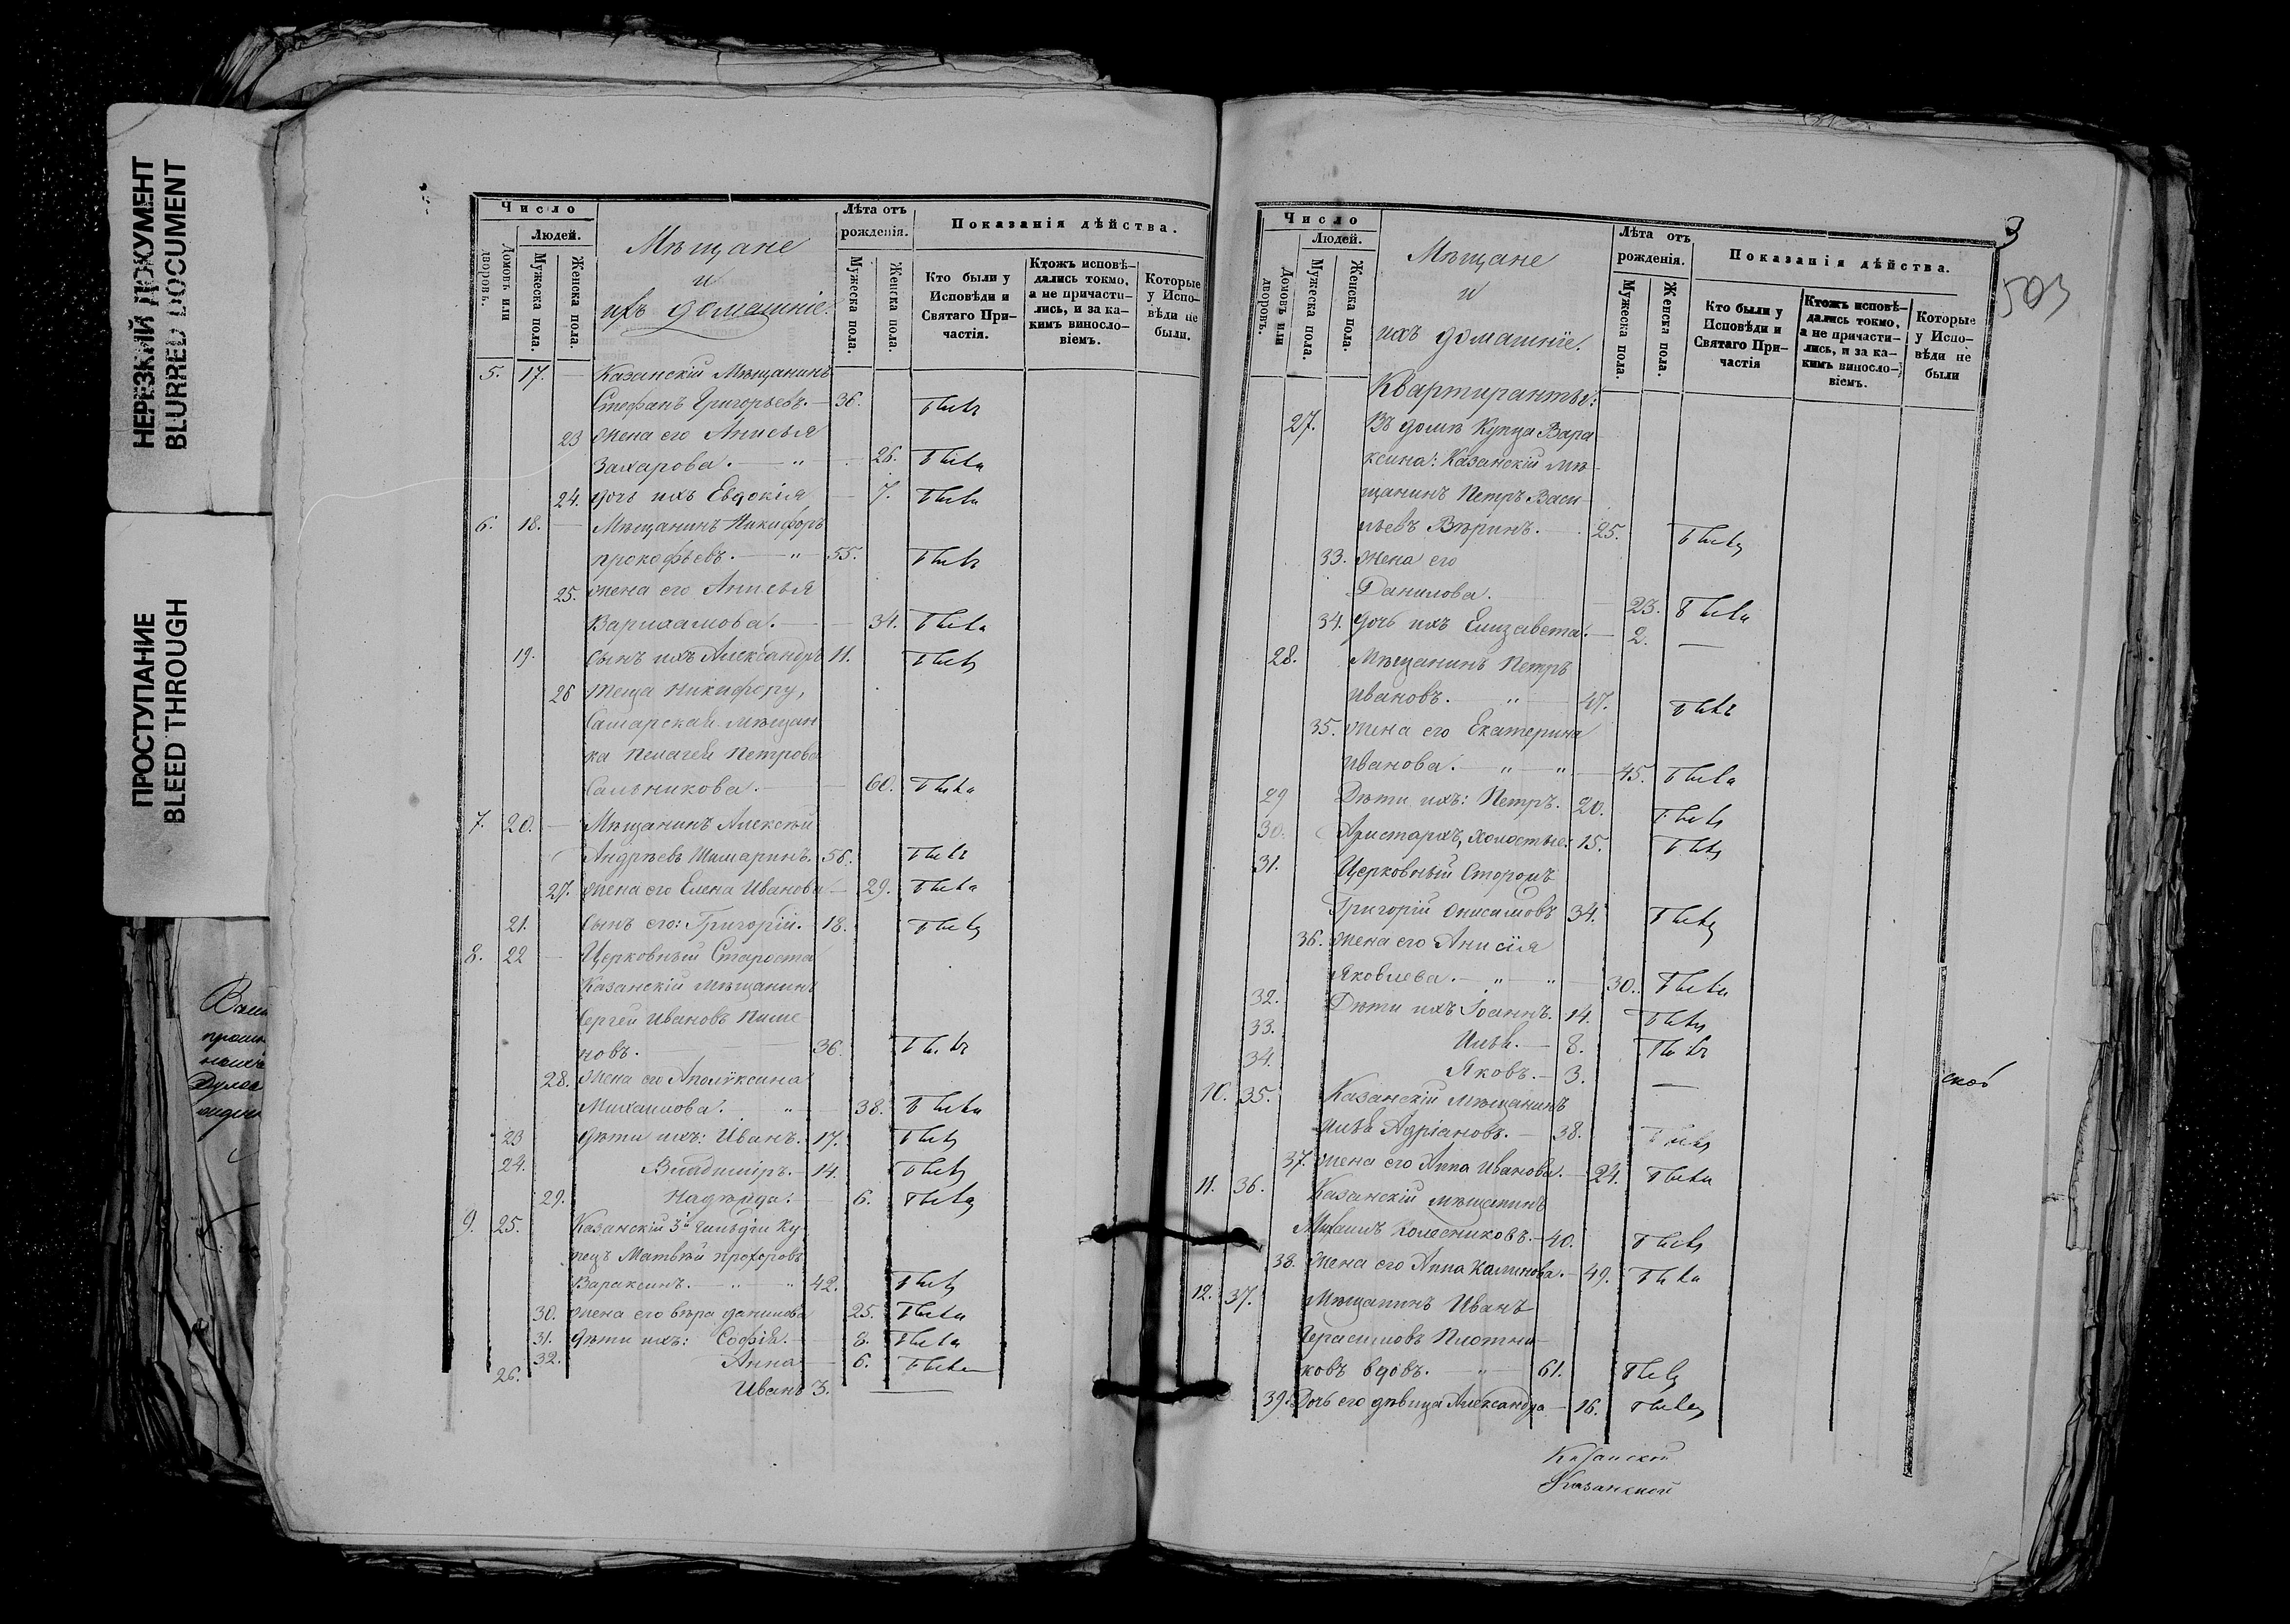 НЕРЕЗКИЙ ДОКУМЕНТ
BLURRED DOCUMENT
ПРОСТУПАНИЕ
BLEED THROUGH
Число
Людей.
Домовъ или дворовъ.
Мужеска пола.
Женска пола.
Мѣщане
и
ихъ домашніе.
Лѣта отъ рожденія.
Мужеска пола.
Женска пола.
Показанія дѣйства.
Кто были у Исповѣди и Святаго Причастія.
Ктожъ исповѣдались токмо, а не причастились, и за какимъ винословіемъ.
Которые у Исповѣди не были.
5. 17. — Казанскій Мѣщанинъ
Стефанъ Григорьевъ. — 36. былъ
23 Жена его Анисья
Захарова. — „ — 26. была
24. дочь ихъ Евдокія — 7. была
6. 18. — Мѣщанинъ Никифоръ
прокофьевъ. — „ — 55. былъ
25. жена его Анисья
Варлаамова. — 34. была
19. Сынъ ихъ Александръ 11. былъ
26 теща Никифору,
Самарская мѣщан
ка Пелагея Петрова
Сальникова. — 60. была
7. 20. — Мѣщанинъ Алексѣй
Андрѣевъ Шишаринъ. 56. былъ
27. жена его Елена Иванова — 29. была
21. Сынъ его: Григорій. 18. былъ
8. 22 — Церковный Староста
Казанскій мѣщанинъ
Сергей Ивановъ Пиме
новъ. — 36. былъ
28. Жена его Аполлксина
Михаилова. „ — 38. была
23 дѣти ихъ: Иванъ. 17. былъ
24. Владиміръ. 14. былъ
29. Надежда. — 6. была
9. 25. Казанскій 3й Гильдіи Ку
пецъ Матвѣй прохоровъ
Вараксинъ. — „ — „ 42. былъ
30. жена его вѣра данилова 25. была
31. дѣти ихъ: Софія. — 8. была
32. Анна — 6. была
26. Иванъ 3. —
3
503
Число
Людей.
Домовъ или дворовъ.
Мужеска пола.
Женска пола.
Мѣщане
и
ихъ домашніе.
Лѣта отъ рожденія.
Мужеска пола.
Женска пола.
Показанія дѣйства.
Кто были у Исповѣди и Святаго Причастія
Ктожъ исповѣдались токмо, а не причастились, и за какимъ винословіемъ.
Которые у Исповѣди не были
Квартиранты:
27. Въ домѣ Купца Вара
ксина: Казанскій мѣ-
щанинъ Петръ Васи-
льевъ Вѣринъ. — 25. былъ
33. Жена его
Данилова. — 23. была
34. дочь ихъ Елизавета. — 2. —
28. Мѣщанинъ Петръ
Ивановъ. „ — 47. былъ
35. жена его Екатерина
Иванова. — „ — „ — 45. была
29 Дѣти ихъ: Петръ. 20. былъ
30. Аристархъ, холостые. 15. былъ
31. Церковный Сторожъ
Григорій Онисимовъ 34. былъ
36. жена его Анисія
Яковлева. — „ — „ — 30. была
32. Дѣти ихъ Іоаннъ. 14. былъ
33. Илья. — 8. былъ
34. Яковъ. — 3. —
10. 35. Казанскій мѣщанинъ
Илья Адріановъ. — 38. былъ
37. жена его Анна Иванова. — 24. была
11. 36. Казанскій мѣщанинъ
Михаилъ Колесниковъ. — 40. былъ
38. Жена его Анна Калинова. — 49. была
12. 37. Мѣщанинъ Иванъ
Герасимовъ Плотни-
ковъ вдовъ. „ 61. былъ
39. Дочь его дѣвица Александра — 16. была
Казанской
Казанской